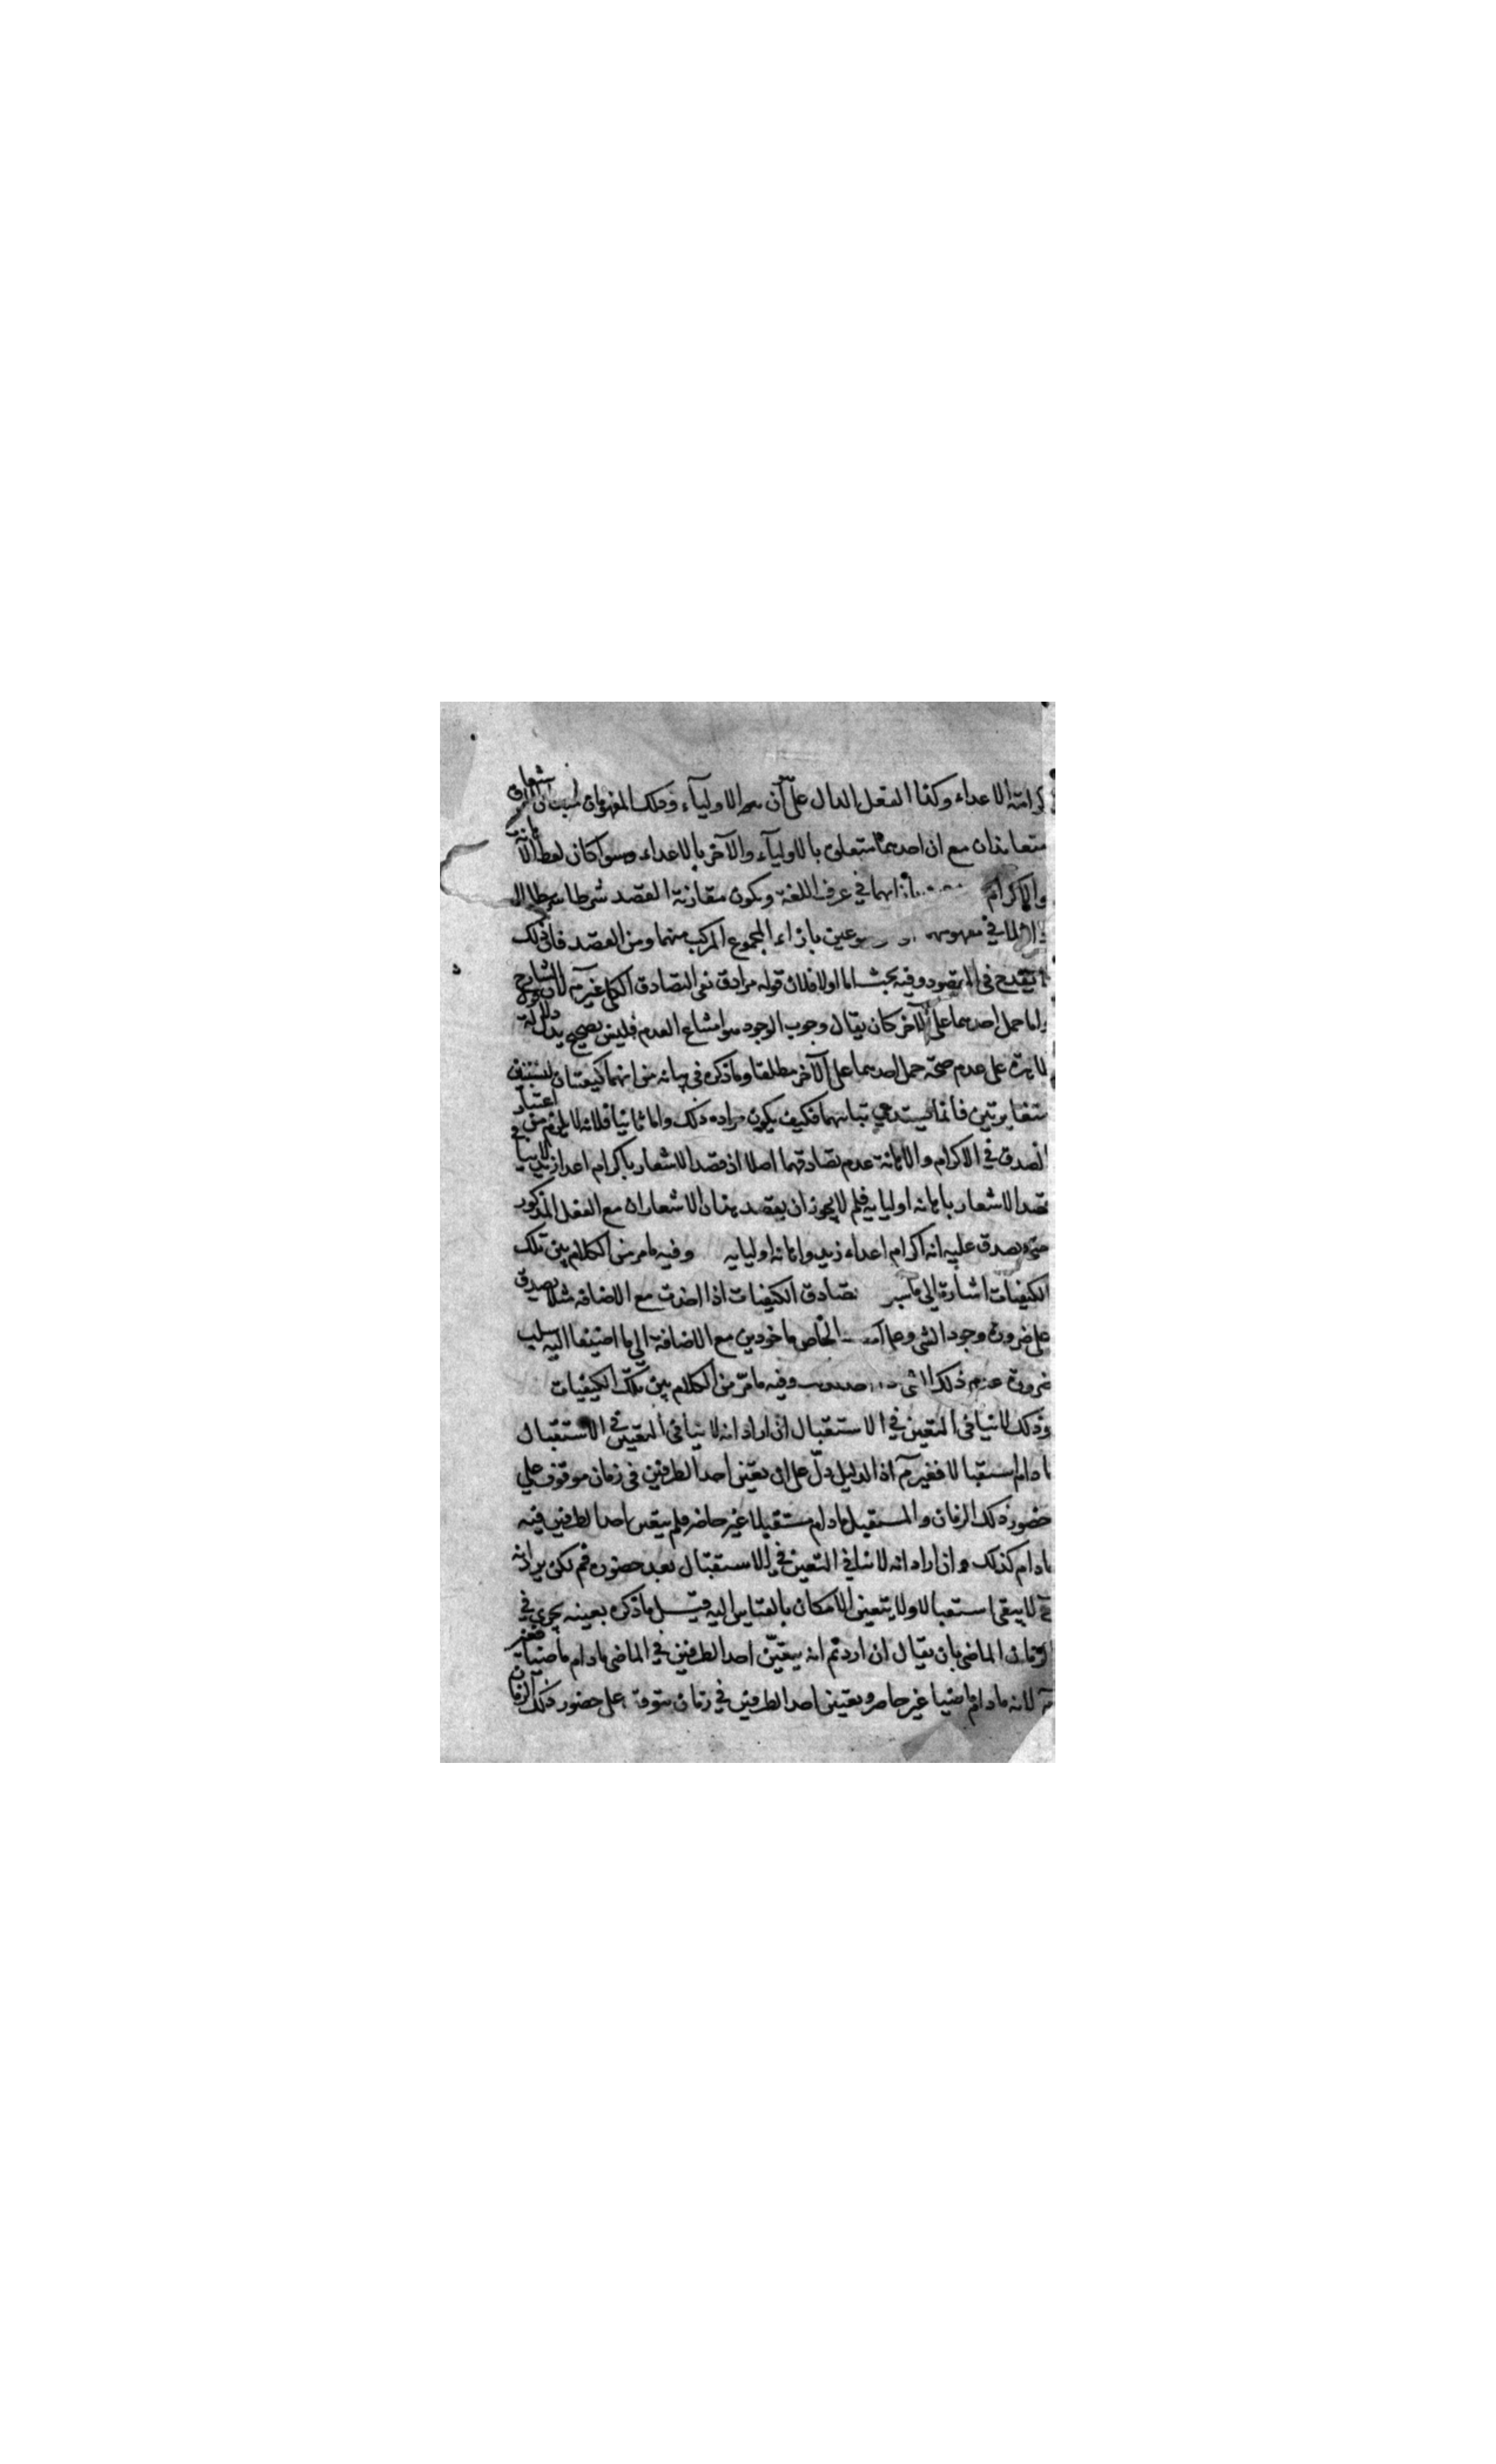 كرامة الاعداء وكذا الفعل الدال على الاولياء وذلك المفهومان اشعار
متعاندان مع ان احدهما متعلق بالاولياء والآخر بالاعداء وسوا كان لفظ الاهانة
والاكرام في عرف اللغة ويكون مقارنة القصد شرطا
في مفهومهما موضوعين بازاء المجموع المركب منهما ومن القصد فان ذلك
لا يقدح في المقصود وفيه بحث اما اولا فلان قوله مرادى نفى التصادق الكلى غير مم لان قول الشارح
واما حمل احدهما على الآخر كان يقال وجوب الوجود هو امتناع العدم فليس بصحيح يدل دلالة
ظاهرة على عدم صحة حمل احدهما على الآخر مطلقا وما ذكره فى بيانه من انهما كيفيتان لنسبتين
متغايرتين فانما يستدعى تباينهما فكيف يكون مراده ذلك واما ثانيا فلانه لا يلزم من اعتبار
القصد فى الاكرام والاهانة عدم تصادقهما اصلا اذ قصد الاشعار باكرام اعداء زيد لا ينافى
قصد الاشعار باهانة اوليايه فلم لا يجوز ان يقصد هذان الاشعاران مع الفعل المذكور
حتى يصدق عليه انه اكرام اعداء زيد واهانة اوليايه وفيه ما مر من الكلام بين تلك
الكيفيات اشارة الى تصادق الكيفيات اذا اخذت مع الاضافة مثلا يصدق
على ضرورة وجود الشى الخاص ماخوذين مع الاضافة الى ما اضيفا اليه سلب
ضرورة عدم ذلك الشى وفيه ما مر من الكلام بين تلك الكيفيات
وذلك لا ينافى التعين فى الاستقبال ان اراد انه لا ينافى التعين فى الاستقبال
ما دام استقبالا فغير مم اذ الدليل دل على ان تعين احد الطرفين فى زمان موقوف على
حضور ذلك الزمان والمستقبل ما دام مستقبلا غير حاضر فلم يتعين احد الطرفين فيه
ما دام كذلك وان اراد انه لا ينافى التعين فى الاستقبال بعد حضوره فمم لكن يرد انه
ح لا يبقى استقبالا ولا يتعين الامكان بالقياس اليه قيل ما ذكره بعينه يجرى فى
الزمان الماضى بان يقال ان اردتم انه يتعين احد الطرفين فى الماضى ما دام ماضيا فغير
مم لانه ما دام ماضيا غير حاضر وتعين احد الطرفين فى زمان يتوقف على حضور ذلك الزمان